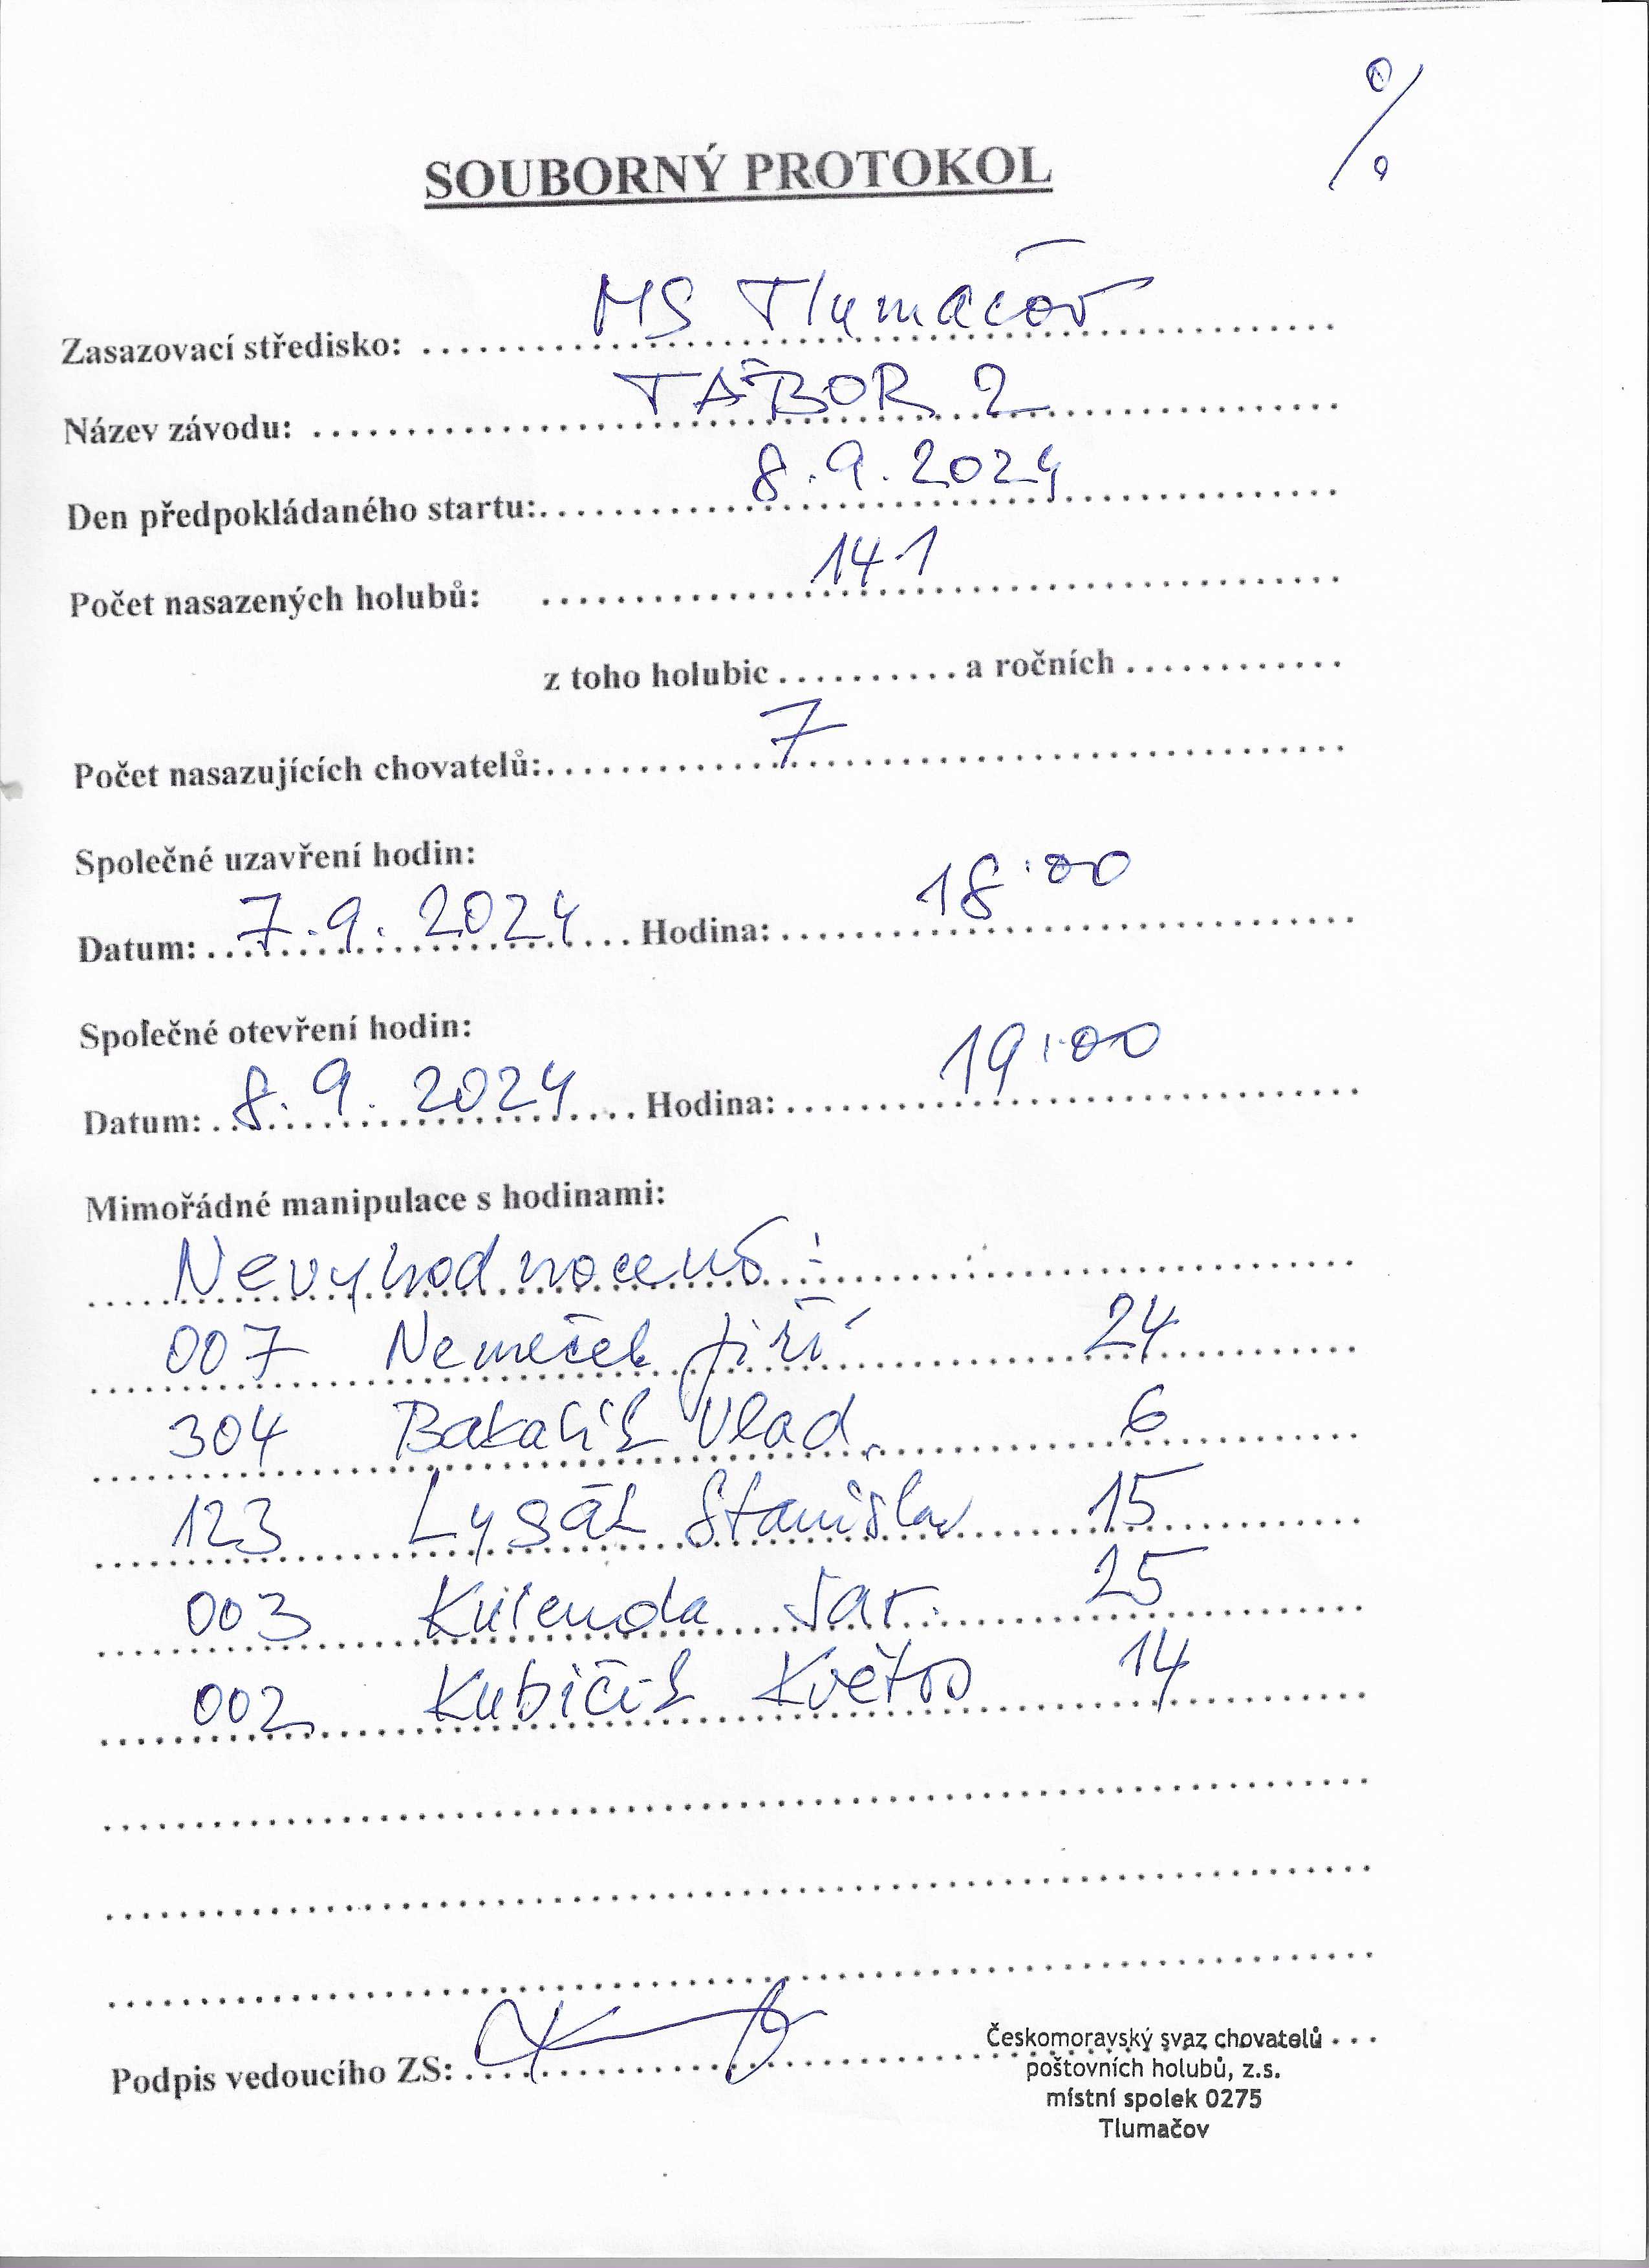 %
SOUBORNÝ PROTOKOL
Zasazovací středisko: MS Tlumačov
Název závodu: TÁBOR 2
Den předpokládaného startu: 8.9.2024
Počet nasazených holubů: 141
z toho holubic .......... a ročních ............
Počet nasazujících chovatelů: 7
Společné uzavření hodin:
Datum: 7.9.2024 Hodina: 18:00
Společné otevření hodin:
Datum: 8.9.2024 Hodina: 19:00
Mimořádné manipulace s hodinami:
007 Nemeček Jiří 24
304 Bakalík Vlad. 6
123 Lysák Stanislav 15
003 Jar. 25
002 Kubičík Květos 14
Podpis vedoucího ZS:
Českomoravský svaz chovatelů
poštovních holubů, z.s.
místní spolek 0275
Tlumačov